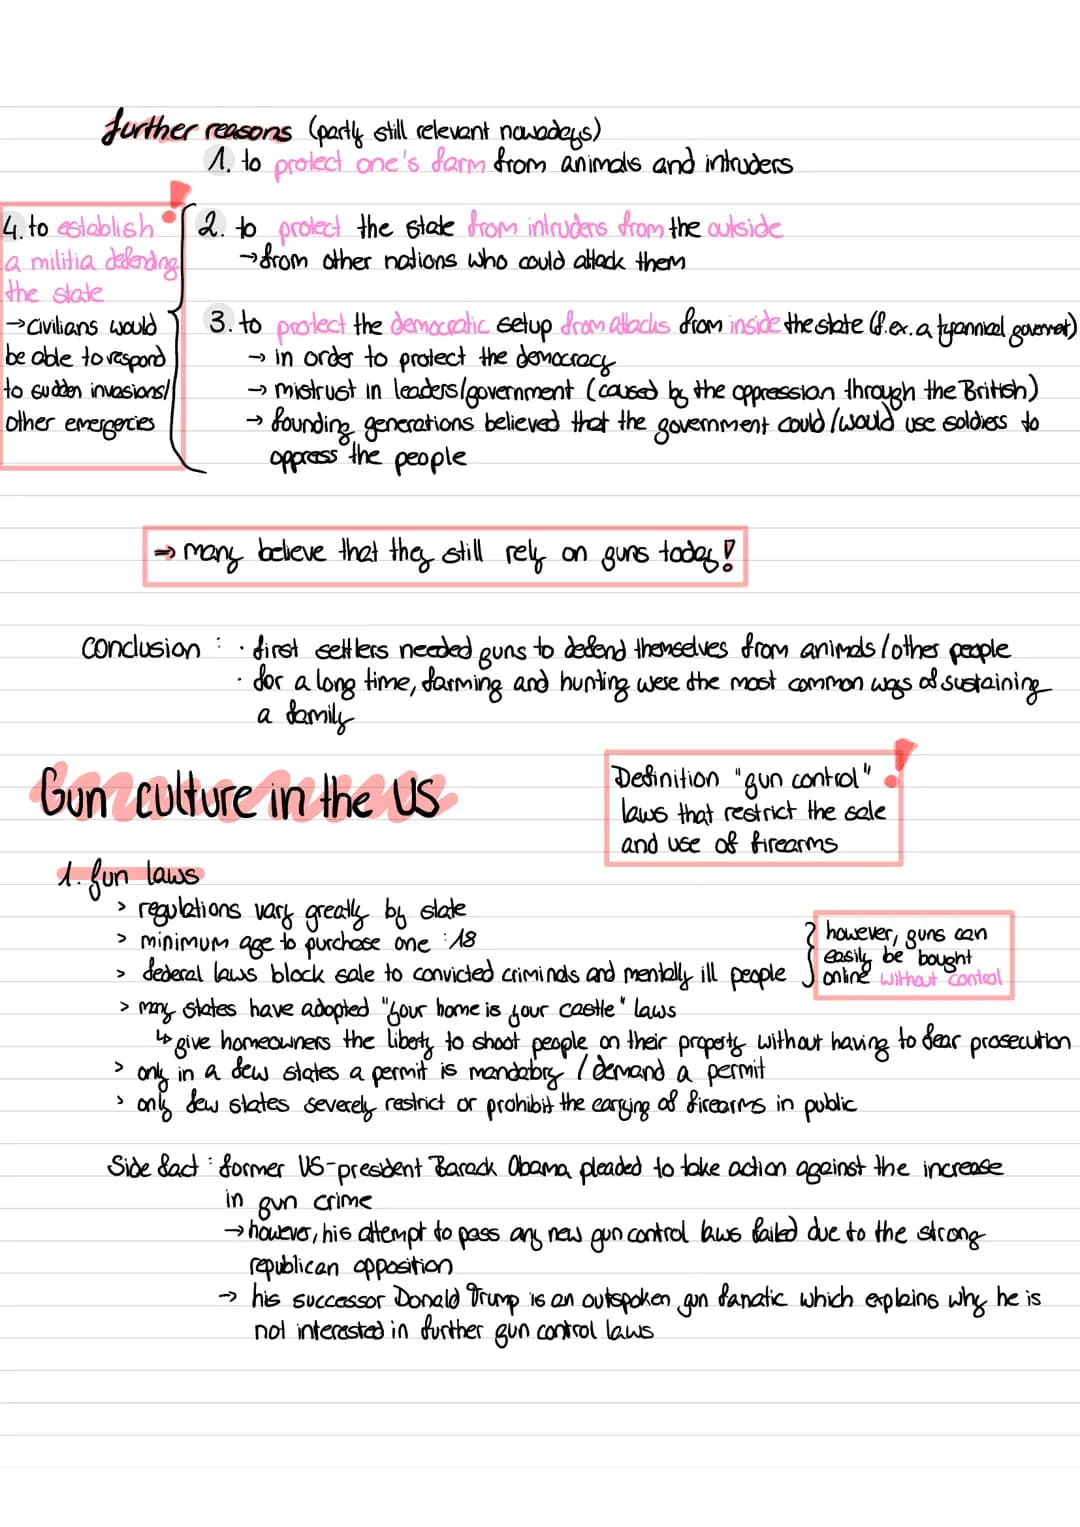 further reasons (partly still relevant nowadays)
1. to protect one's farm from animals and intruders
2. to protect the state from intruders from the outside
→ from other nations who could attack them
3. to protect the democratic setup from attacks from inside the state (f.ex. a tyannical governet)
→ in order to protect the democracy
→ mistrust in leaders/government (caused by the oppression through the British)
→ founding generations believed that the government could/would use soldiers to
oppress the people
4. to establish
a militia defending
the state
→ civilians would
be able to respond
to sudden invasions/
other emergecies
⇒ many believe that they still rely on guns today!
conclusion : · first settlers needed guns to defend themselves from animals/other people
· for a long time, farming and hunting were the most common ways of sustaining
a family
Gun culture in the US
Definition "gun control"
laws that restrict the sale
and use of firearms
1. gun laws
> regulations vary greatly by state
> minimum age to purchase one : 18
> federal laws block sale to convicted criminals and mentally ill people
however, guns can
easily be bought
online without control
> many states have adopted "your home is your castle" laws
↳ give homeowners the liberty to shoot people on their property without having to fear prosecution
> only in a few states a permit is mandatory / demand a permit
> only few states severely restrict or prohibit the carrying of firearms in public
Side fact : former US-president Barack Obama pleaded to take action against the increase
in gun crime
→ however, his attempt to pass any new gun control laws failed due to the strong
republican opposition
→ his successor Donald Trump is an outspoken gun fanatic which explains why he is
not interested in further gun control laws